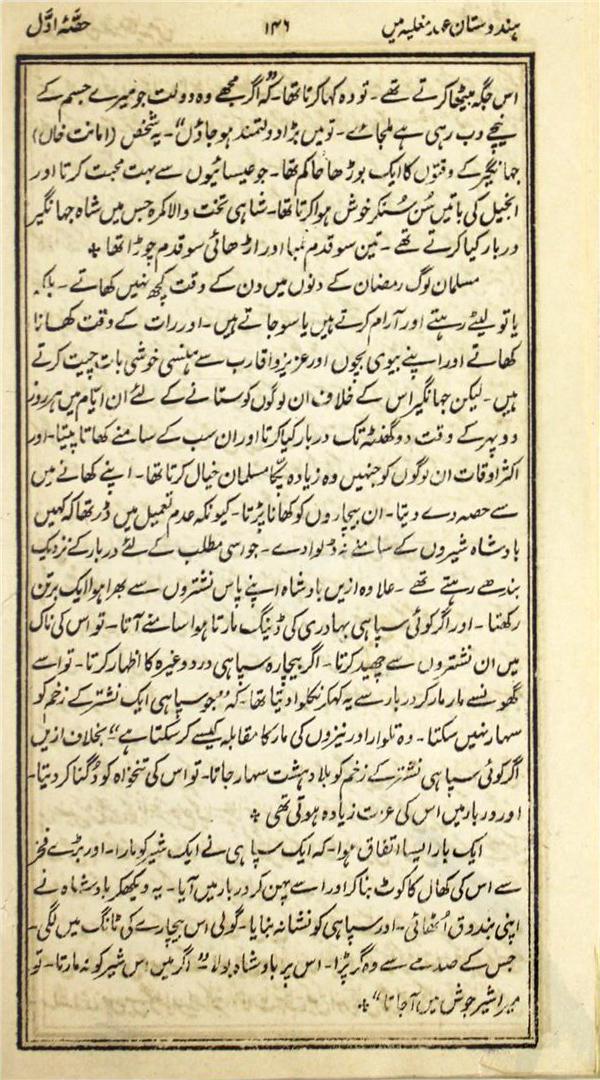 ہندوستان عہد مغلیہ میں ۱۴۶ حصّہ اوّل
اس جگہ بیٹھا کرتے تھے۔ تو وہ کہا کرتا تھا۔ کہ "اگر مجھے وہ دولت جو میرے جسم کے
نیچے دب رہی ہے ملجائے۔ تو میں بڑا دولتمند ہو جاؤں"۔ یہ شخص (امانت خاں)
جہانگیر کے وقتوں کا ایک بوڑھا حاکم تھا۔ جو عیسائیوں سے بہت محبت کرتا اور
انجیل کی باتیں سُن سُنکر خوش ہوا کرتا تھا۔ شاہی تخت والا کمرہ جس میں شاہ جہانگیر
دربار کیا کرتے تھے۔ تین سو قدم لمبا اور اڑھائی سو قدم چوڑا تھا ٭
مسلمان لوگ رمضان کے دنوں میں دن کے وقت کچھ نہیں کھاتے۔ بلکہ
یا تو لیٹے رہتے اور آرام کرتے ہیں یا سو جاتے ہیں۔ اور رات کے وقت کھانا
کھاتے اور اپنے بیوی بچوں اور عزیز و اقارب سے ہنسی خوشی بات چیت کرتے
ہیں۔ لیکن جہانگیر اس کے خلاف ان لوگوں کو ستانے کے لئے ان ایّام میں ہر روز
دوپہر کے وقت دو گھنٹہ تک دربار کیا کرتا اور ان سب کے سامنے کھاتا پیتا۔ اور
اکثر اوقات ان لوگوں کو جنہیں وہ زیادہ پکّا مسلمان خیال کرتا تھا۔ اپنے کھانے میں
سے حصہ دے دیتا۔ ان بیچاروں کو کھانا پڑتا۔ کیونکہ عدم تعمیل میں ڈر تھا کہ کہیں
بادشاہ شیروں کے سامنے نہ ڈلوا دے۔ جو اسی مطلب کے لئے دربار کے نزدیک
بندھے رہتے تھے۔ علاوہ ازیں بادشاہ اپنے پاس نشتروں سے بھرا ہوا ایک برتن
رکھتا۔ اور اگر کوئی سپاہی بہادری کی ڈینگ مارتا ہوا سامنے آتا۔ تو اس کی ناک
میں ان نشتروں سے چھید کرتا۔ اگر بیچارہ سپاہی درد وغیرہ کا اظہار کرتا۔ تو اسے
گھونسے مار مار کر دربار سے یہ کہکر نکلوا دیتا تھا۔ کہ "جو سپاہی ایک نشتر کے زخم کو
سہار نہیں سکتا۔ وہ تلوار اور نیزوں کی مار کا مقابلہ کیسے کر سکتا ہے" بخلاف ازیں
اگر کوئی سپاہی نشتر کے زخم کو بلا دہشت سہار جاتا۔ تو اس کی تنخواہ کو دُگنا کر دیتا۔
اور دربار میں اس کی عزت زیادہ ہوتی تھی ٭
ایک بار ایسا اتفاق ہوا۔ کہ ایک سپاہی نے ایک شیر کو مارا۔ اور بڑے فخر
سے اس کی کھال کا کوٹ بنا کر اور اسے پہن کر دربار میں آیا۔ یہ دیکھکر بادشاہ نے
اپنی بندوق اُٹھائی۔ اور سپاہی کو نشانہ بنایا۔ گولی اس بیچارے کی ٹانگ میں لگی۔
جس کے صدمے سے وہ گر پڑا۔ اس پر بادشاہ بولا۔ "اگر میں اس شیر کو نہ مارتا۔ تو
میرا شیر جوش میں آ جاتا" ٭